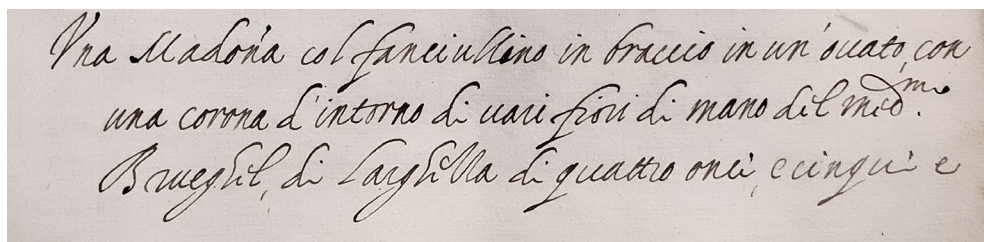 Vna Madoña col fanciullino in braccio in un'ouato, con
una corona d'intorno di uari fiori di mano del med.mo
Brueghel, di larghezza di quattro oncie, e cinque e